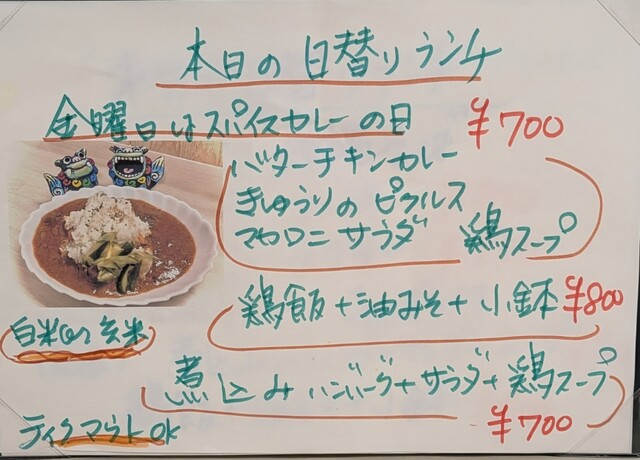 本日の日替りランチ
金曜日はスパイスカレーの日 ¥700
バターチキンカレー
きゅうりのピクルス
マカロニサラダ 鶏スープ
鶏飯+油みそ+小鉢 ¥800
白米or玄米
煮込みハンバーグ+サラダ+鶏スープ
¥700
ティクアウトok